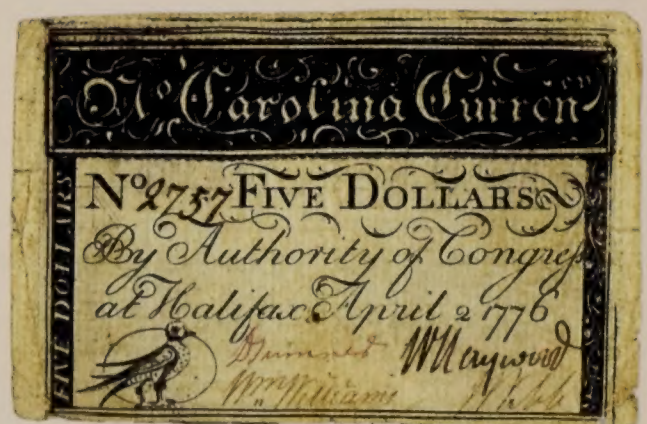 No Carolina Currency
FIVE DOLLARS
No 2757 FIVE DOLLARS
By Authority of Congress
at Halifax April 2 1776
W Haywood
Wm Williams